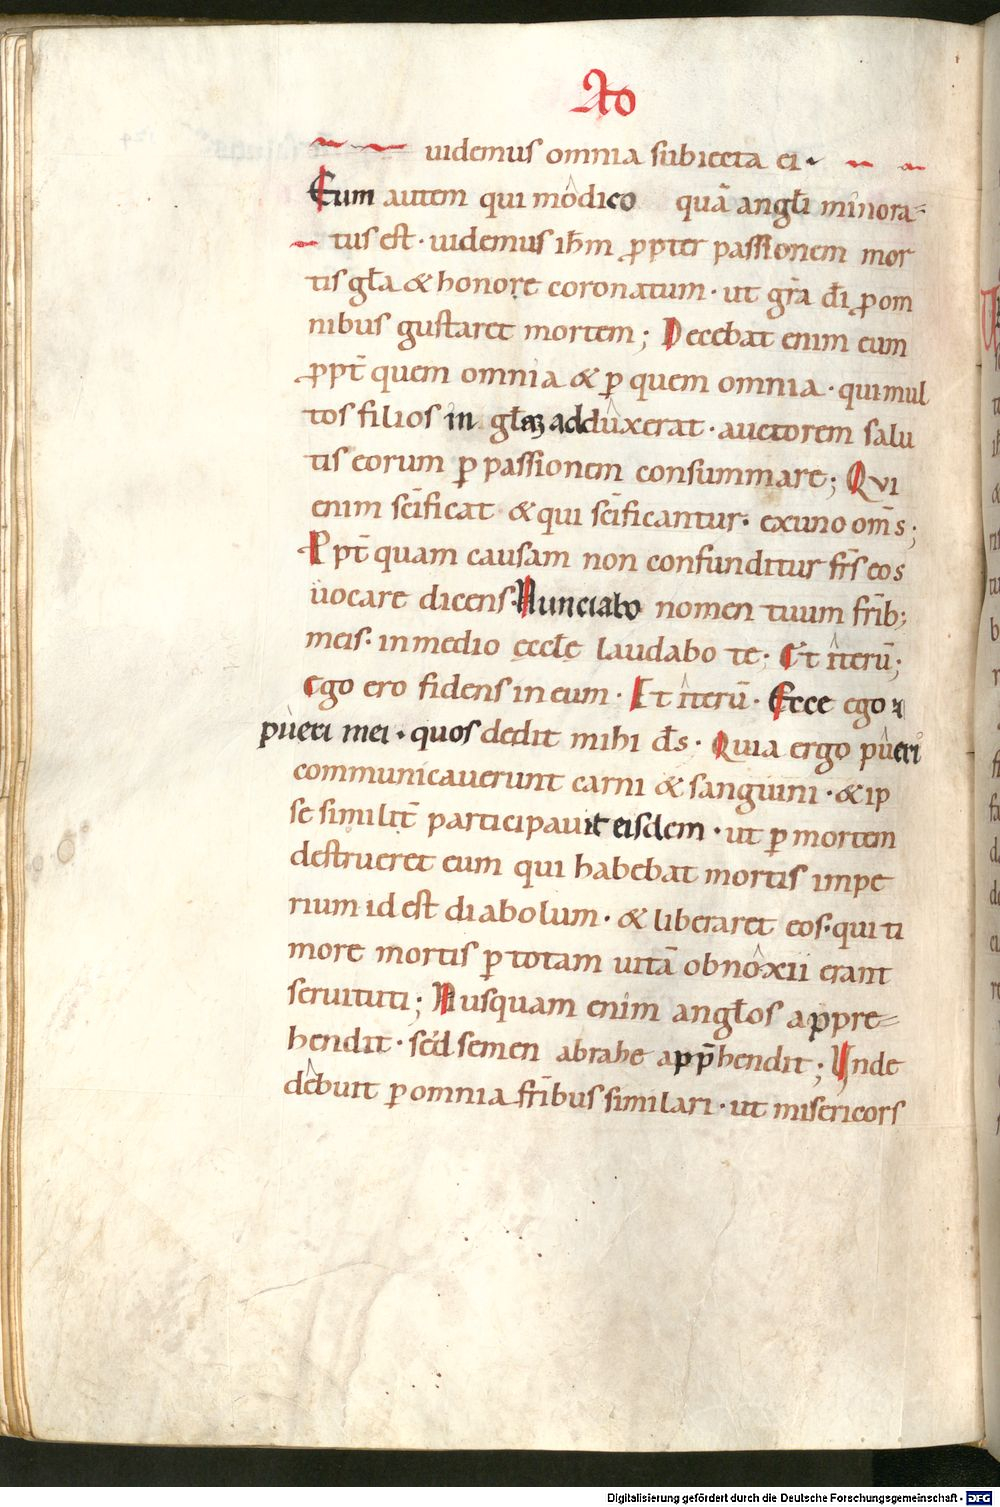 Ao
uidemus omnia subiecta ei.
Eum autem qui modico quā angłi minora-
tus est. uidemus ihm̄ ꝓpter passionem mor
tis gła & honore coronatum. ut gr̄a dı̄ ꝓ om
nibus gustaret mortem; Decebat enim eum
ꝓpt̄ quem omnia & ꝑ quem omnia. qui mul
tos filios in głaꝫ adduxerat. auctorem salu
tis eorum ꝑ passionem consummare; Qui
enim sc̄ificat & qui sc̄ificantur. ex uno om̄s;
Ppt̄ quam causam non confunditur fr̄s eos
uocare dicens. Nunciabo nomen tuum fr̄ib;
meis. in medio ęccłe laudabo te; Et iterū;
Ego ero fidens in eum. Et iterū. Ecce ego ⁊
pueri mei. quos dedit mihi d̄s. Quia ergo pueri
communicauerunt carni & sanguini. & ip
se similit̄ participauit eisdem. ut ꝑ mortem
destrueret eum qui habebat mortis impe
rium id est diabolum. & liberaret eos. qui ti
more mortis ꝑ totam uitā obnoxii erant
seruituti; Nusquam enim angłos appre-
hendit. sed semen abrahe app̄hendit; Unde
debuit ꝑ omnia fr̄ibus similari. ut misericors
Digitalisierung gefördert durch die Deutsche Forschungsgemeinschaft - DFG